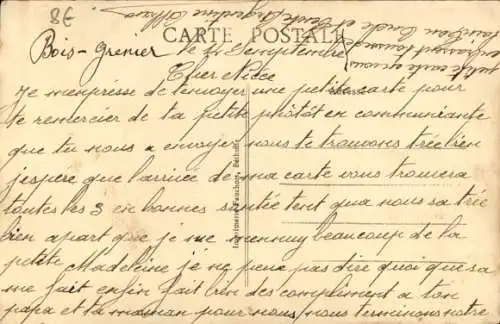 8€
CARTE POSTALE
Bois-Grenier le 2 Semptembre
Cher Nièce
Je m'enpresse de t'envoyer une petite carte pour
te remercier de ta petite phôtôt en communiante
que tu nous a envoyé nous te trouvons trèe bien
j'espère que l'arrivée de ma carte vous trouvera
toutes les 3 en bonnes santée tent qua nous sa trée
bien apart que je me mennuy beaucoup de la
petite Madeleine je ne peux pas dire quoi que sa
me fait enfin fait bien des compliment a ton
papa et ta maman pour nous nous terminons notre
petite carte en vous
embrassant tous
ton Oncle et
Tente
Imprimerie